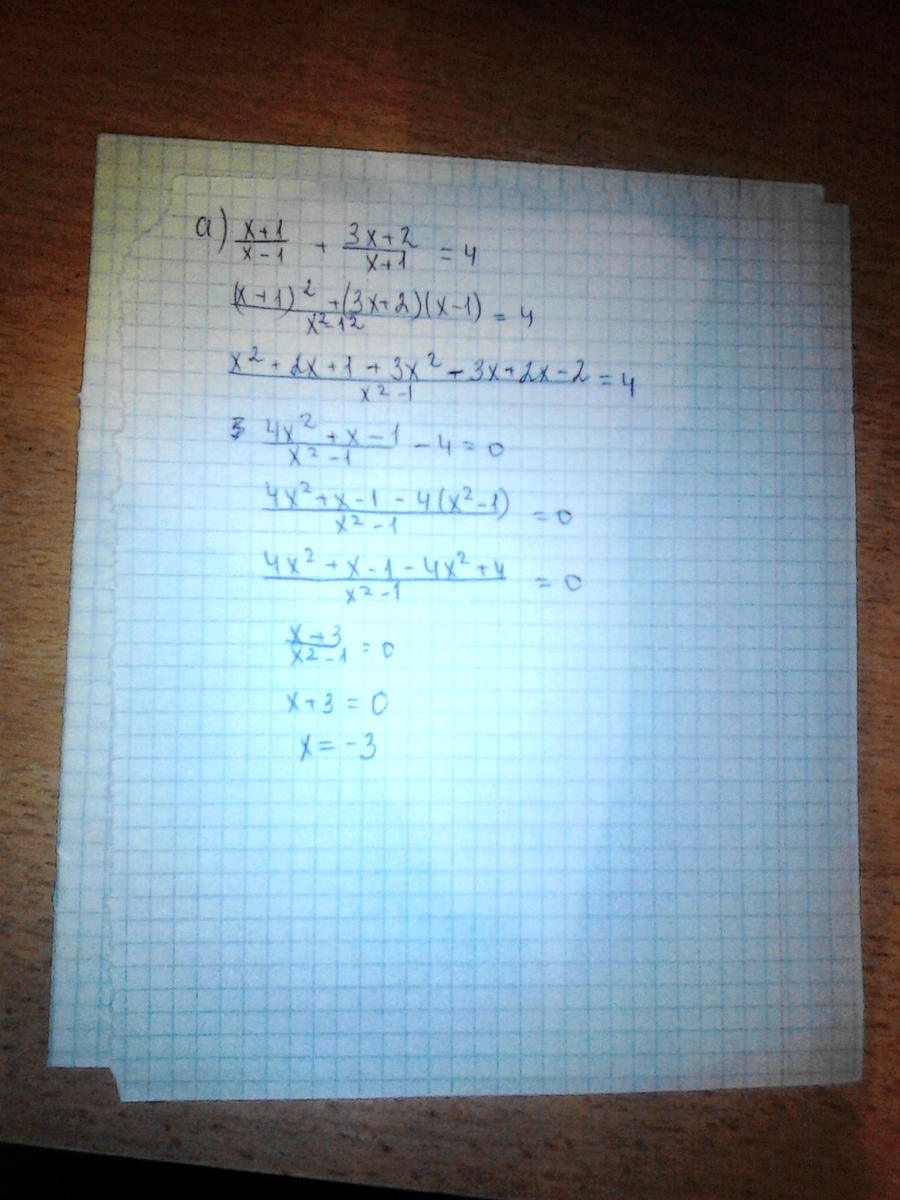 а) (x+1)/(x-1) + (3x+2)/(x+1) = 4
((x+1)² + (3x+2)(x-1))/(x²-1²) = 4
(x² + 2x + 1 + 3x² - 3x + 2x - 2)/(x²-1) = 4
(4x² + x - 1)/(x²-1) - 4 = 0
(4x² + x - 1 - 4(x²-1))/(x²-1) = 0
(4x² + x - 1 - 4x² + 4)/(x²-1) = 0
(x+3)/(x²-1) = 0
x+3 = 0
x = -3